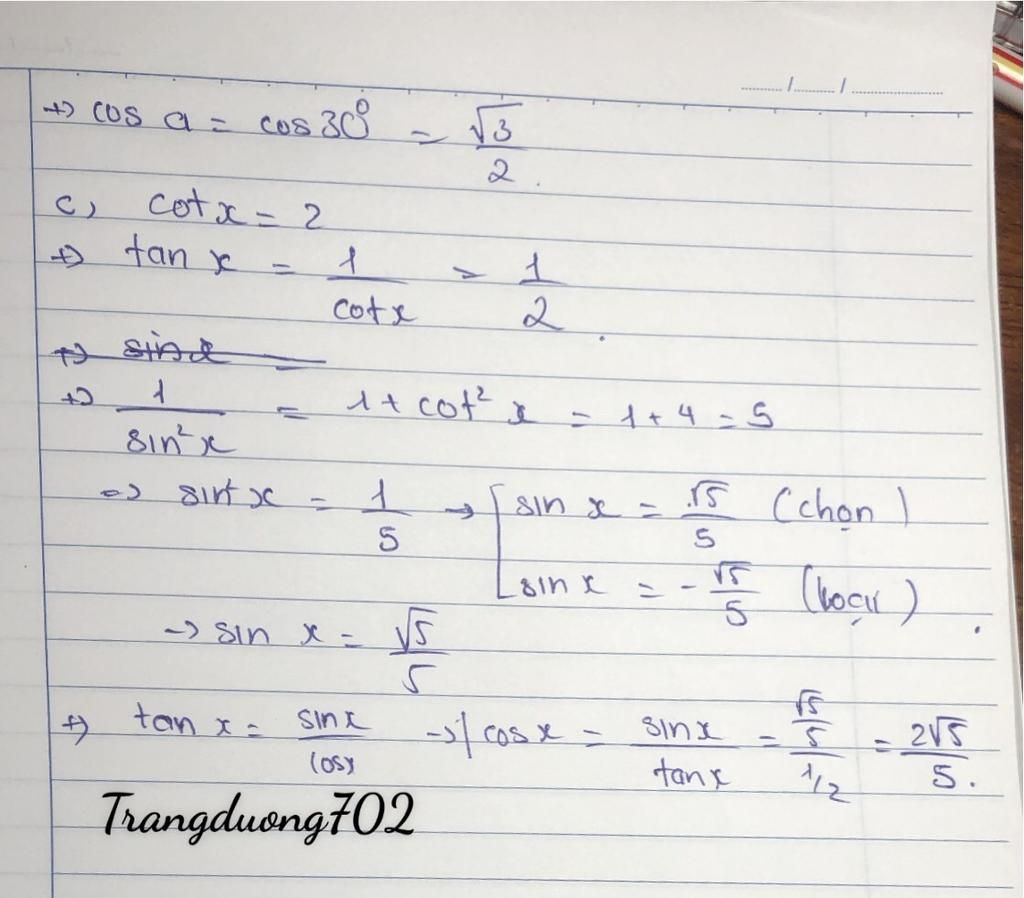 +) cos a = cos 30° = √3/2.
c, cot x = 2
+) tan x = 1/cot x = 1/2.
+) sin x =
+) 1/sin²x = 1 + cot² x = 1 + 4 = 5
=> sin²x = 1/5 → [ sin x = √5/5 (chọn)
sin x = -√5/5 (loại).
→ sin x = √5/5
+) tan x = sin x/cos x → cos x = sin x/tan x = (√5/5)/(1/2) = 2√5/5.
Trangduong702